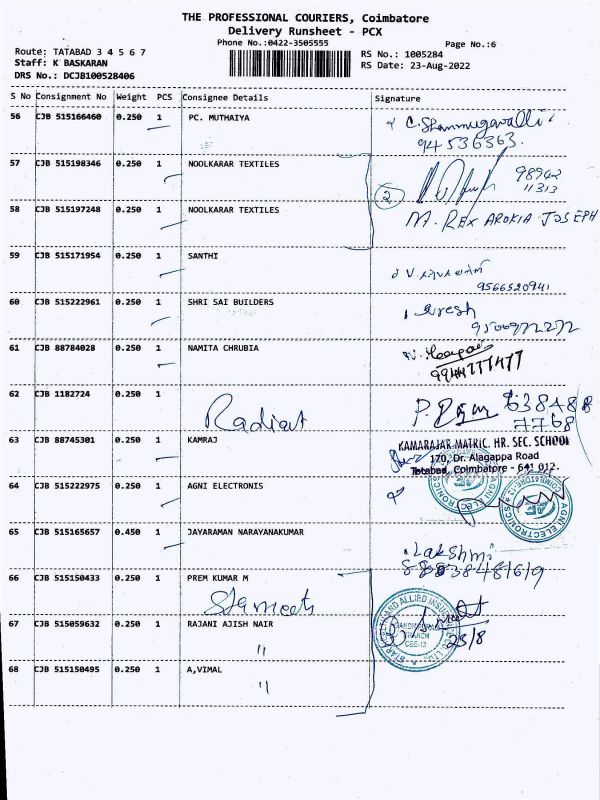 THE PROFESSIONAL COURIERS, Coimbatore
Delivery Runsheet - PCX
Phone No.:0422-3505555
Page No.:6
Route: TATABAD 3 4 5 6 7
Staff: K BASKARAN
DRS No.: DCJB100528406
RS No.: 1005284
RS Date: 23-Aug-2022
S No Consignment No Weight PCS Consignee Details Signature
56 CJB 515166460 0.250 1 PC. MUTHAIYA C. Shanmugavalli
94536363.
57 CJB 515198346 0.250 1 NOOLKARAR TEXTILES
11313
2
58 CJB 515197248 0.250 1 NOOLKARAR TEXTILES M. REX AROKIA JOSEPH
59 CJB 515171954 0.250 1 SANTHI
9566520941
60 CJB 515222961 0.250 1 SHRI SAI BUILDERS Suresh
9500972272
61 CJB 88784028 0.250 1 NAMITA CHRUBIA
9944777477
62 CJB 1182724 0.250 1
Radiant
7768
63 CJB 88745301 0.250 1 KAMRAJ KAMARAJAR MATRIC. HR. SEC. SCHOOL
170, Dr. Alagappa Road
Tatabad, Coimbatore - 641 012.
64 CJB 515222975 0.250 1 AGNI ELECTRONIS
AGNI ELECTRONICS
COIMBATORE-12
65 CJB 515165657 0.450 1 JAYARAMAN NARAYANAKUMAR Lakshmi
66 CJB 515150433 0.250 1 PREM KUMAR M
Star meets
67 CJB 515059632 0.250 1 RAJANI AJISH NAIR
23/8
"
68 CJB 515150495 0.250 1 A,VIMAL
"